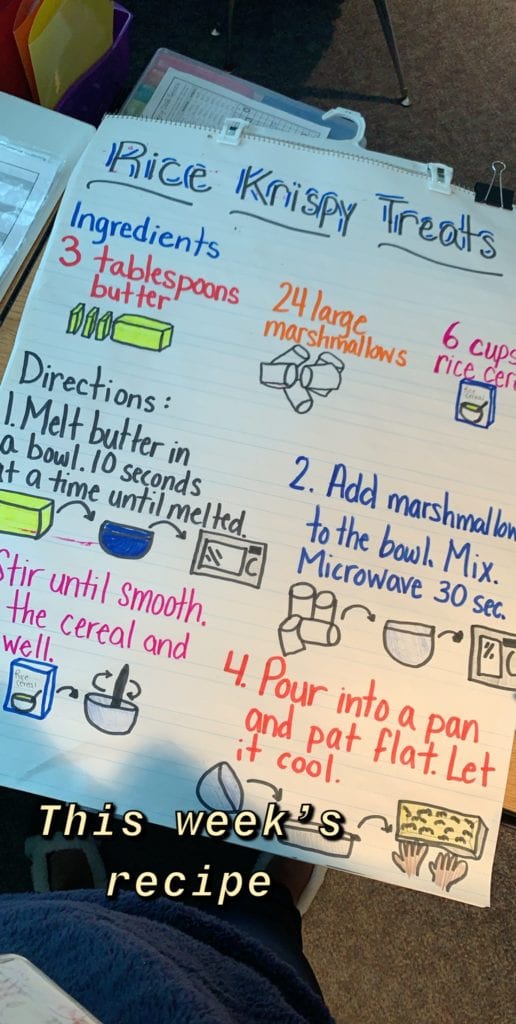 Rice Krispy Treats
Ingredients
3 tablespoons
butter
24 large
marshmallows
6 cups
rice cere
Directions:
1. Melt butter in
a bowl. 10 seconds
at a time until melted.
2. Add marshmallow
to the bowl. Mix.
Microwave 30 sec.
Stir until smooth.
the cereal and
well.
Rice
cereal
4. Pour into a pan
and pat flat. Let
it cool.
This week's
recipe